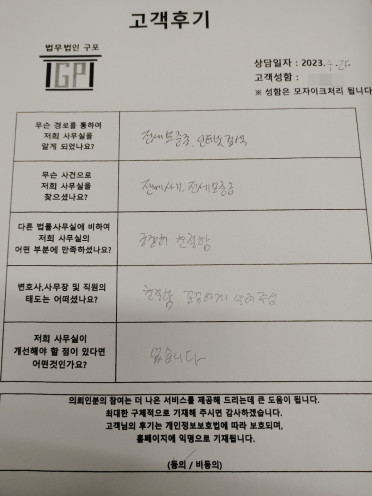 고객후기
법무법인 구포
GP
상담일자 : 2023.4.26
고객성함 :
※ 성함은 모자이크처리 됩니다
무슨 경로를 통하여
저희 사무실을
알게 되었나요?
전세보증금, 인터넷 검색
무슨 사건으로
저희 사무실을
찾으셨나요?
전세사기, 전세보증금
다른 법률사무실에 비하여
저희 사무실의
어떤 부분에 만족하셨나요?
굉장히 친절함
변호사,사무장 및 직원의
태도는 어떠셨나요?
친절함 꼼꼼하게 알려주심
저희 사무실이
개선해야 할 점이 있다면
어떤것인가요?
없습니다
의뢰인분의 참여는 더 나은 서비스를 제공해 드리는데 큰 도움이 됩니다.
최대한 구체적으로 기재해 주시면 감사하겠습니다.
고객님의 후기는 개인정보보호법에 따라 보호되며,
홈페이지에 익명으로 기재됩니다.
(동의 / 비동의)